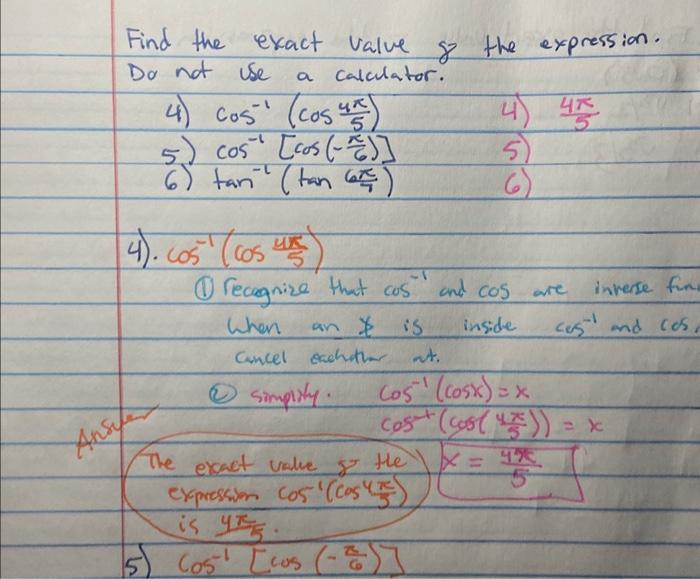 Find the exact value of the expression.
Do not use a calculator.
4) cos⁻¹ (cos 4π/5)
4) 4π/5
5) cos⁻¹ [cos(-π/6)]
5)
6) tan⁻¹ (tan 6π/7)
6)
4). cos⁻¹ (cos 4π/5)
① recognize that cos⁻¹ and cos are inverse fun
When an x is inside cos⁻¹ and cos,
cancel eachother out.
② simplify. cos⁻¹ (cosx) = x
cos⁻¹ (cos(4π/5)) = x
Answer
The exact value of the
expression cos⁻¹(cos 4π/5)
is 4π/5.
x = 4π/5
5) cos⁻¹ [cos (-π/6)]